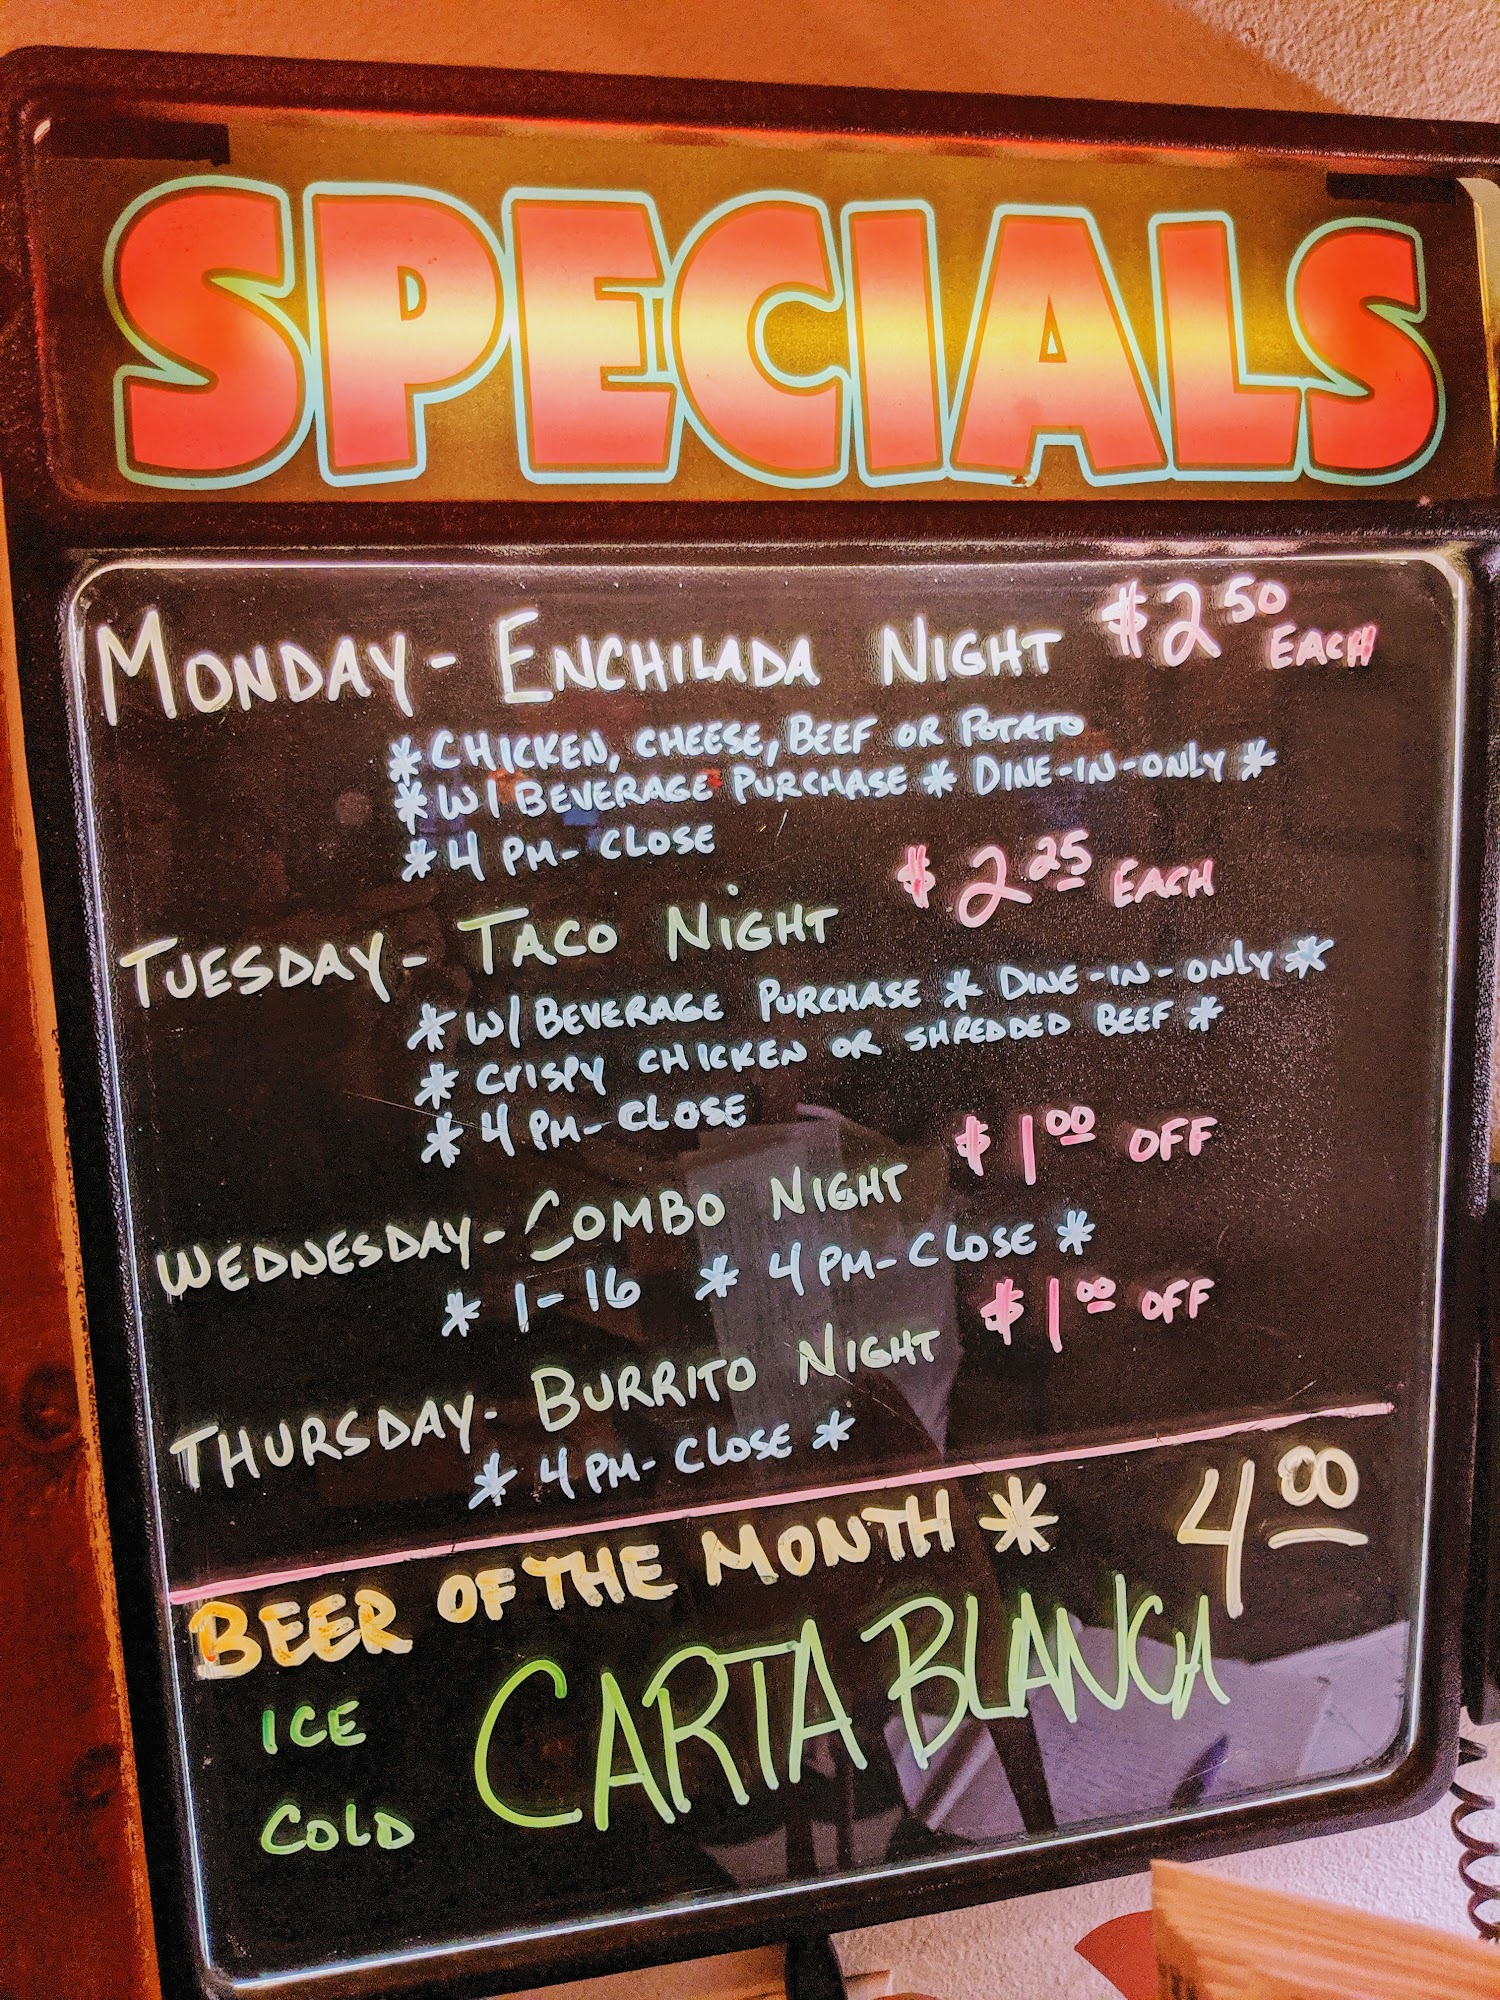 SPECIALS
MONDAY - ENCHILADA NIGHT $2 50 EACH
* CHICKEN, CHEESE, BEEF OR POTATO
* W/ BEVERAGE PURCHASE * DINE-IN-ONLY *
* 4 PM - CLOSE
TUESDAY - TACO NIGHT $2 25 EACH
* W/ BEVERAGE PURCHASE * DINE-IN-ONLY *
* CRISPY CHICKEN OR SHREDDED BEEF *
* 4 PM - CLOSE
WEDNESDAY - COMBO NIGHT $1 00 OFF
* 1-16 * 4 PM - CLOSE *
THURSDAY - BURRITO NIGHT $1 00 OFF
* 4 PM - CLOSE *
BEER OF THE MONTH * 4 00
ICE COLD CARTA BLANCA